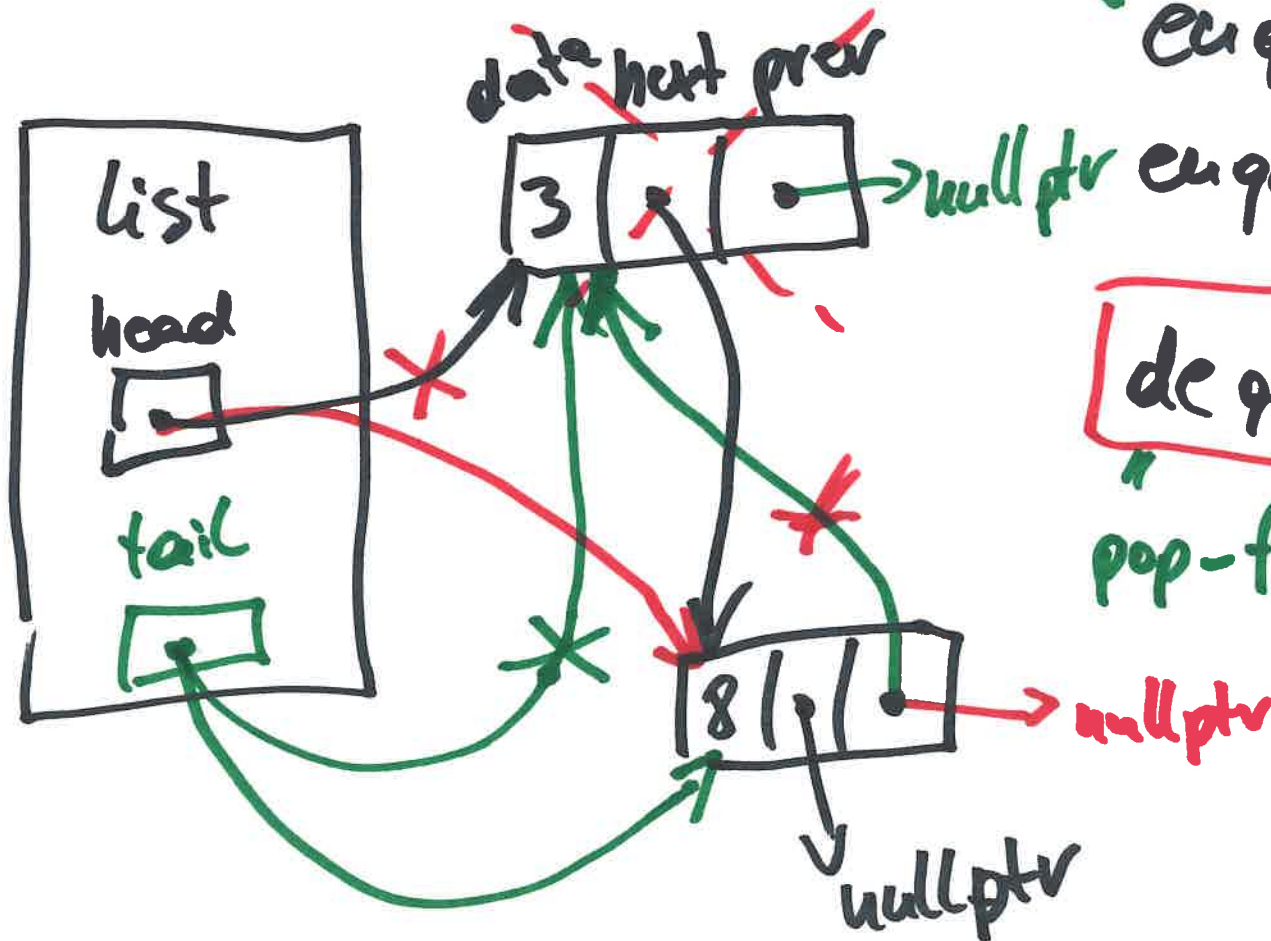 data next prev
enq
list
3
nullptr
enq
head
deq
tail
pop-f
8
nullptr
nullptr